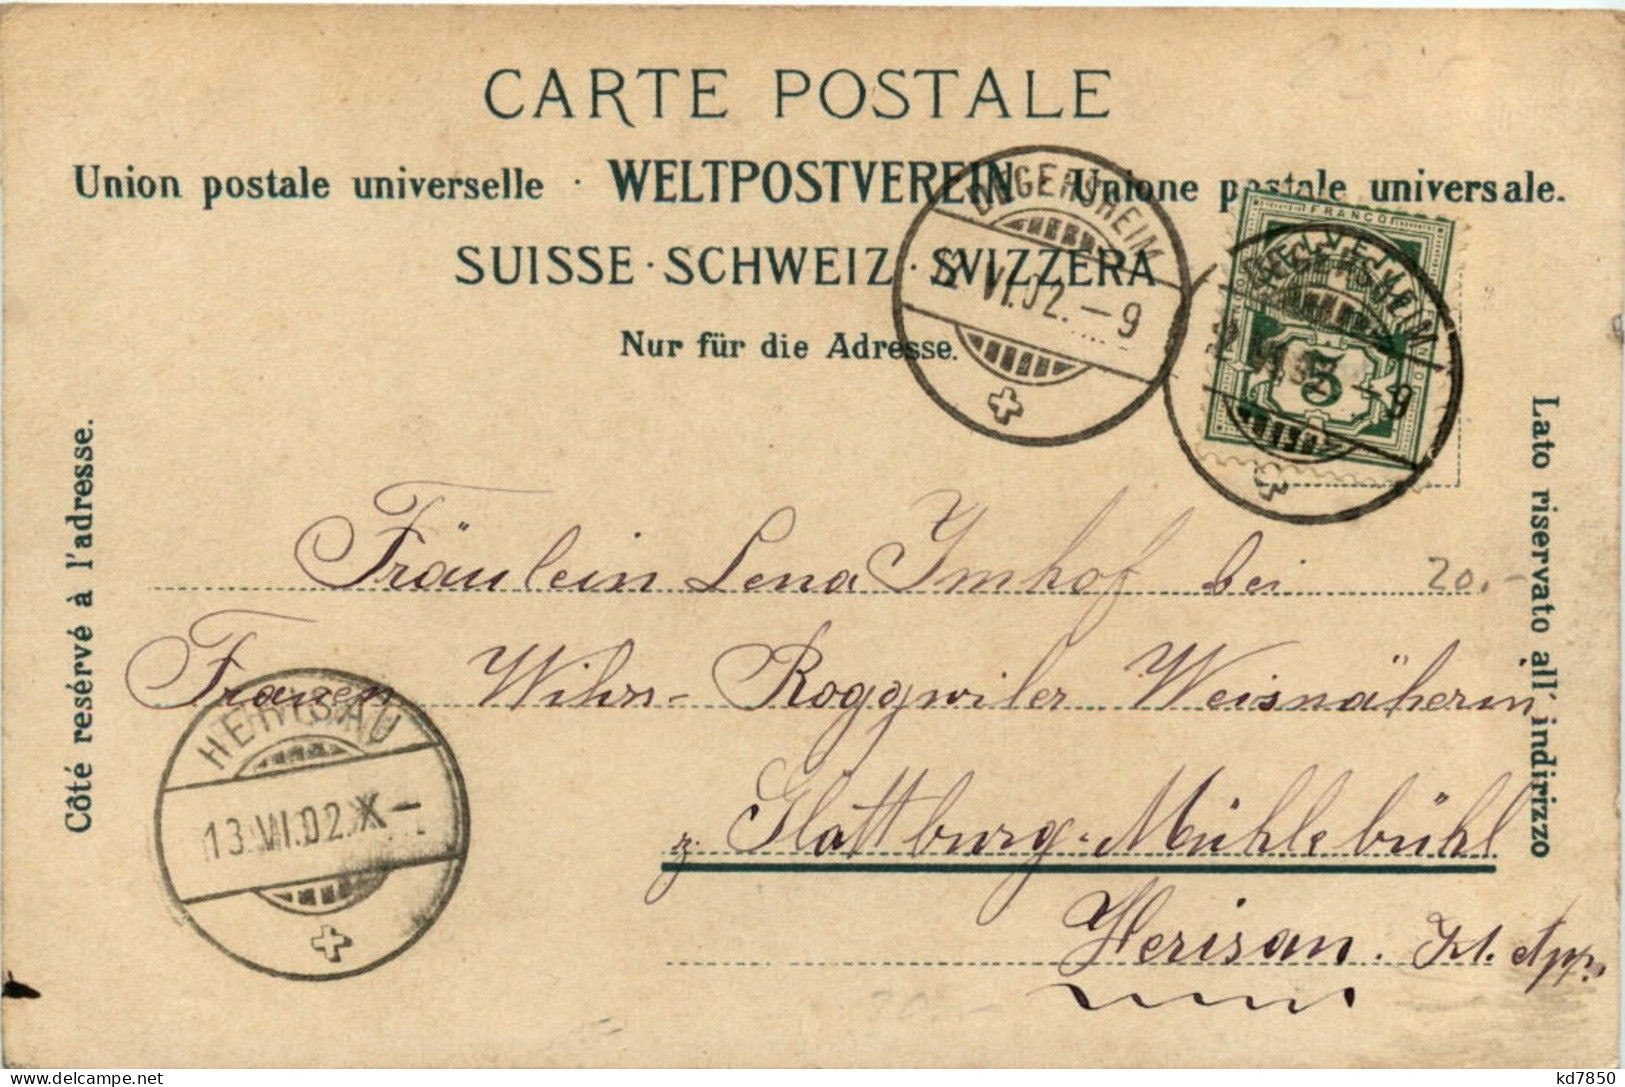 CARTE POSTALE
Union postale universelle · WELTPOSTVEREIN · Unione postale universale.
SUISSE · SCHWEIZ · SVIZZERA
Nur für die Adresse.
DEGERSHEIM
12.VI.02.–9
FRANCO
HELVETIA
5
DEGERSHEIM
12.VI.02.–9
Côté resérvé à l'adresse.
Lato riservato all' indirizzo
Fräulein Lena Imhof bei
20.-
Frauen Wihrn- Roggwiler Weisnäherin
z. Glattburg-Mühlebühl
Herisau. Kt. App.
HERISAU
13.VI.02.X–
kd7850